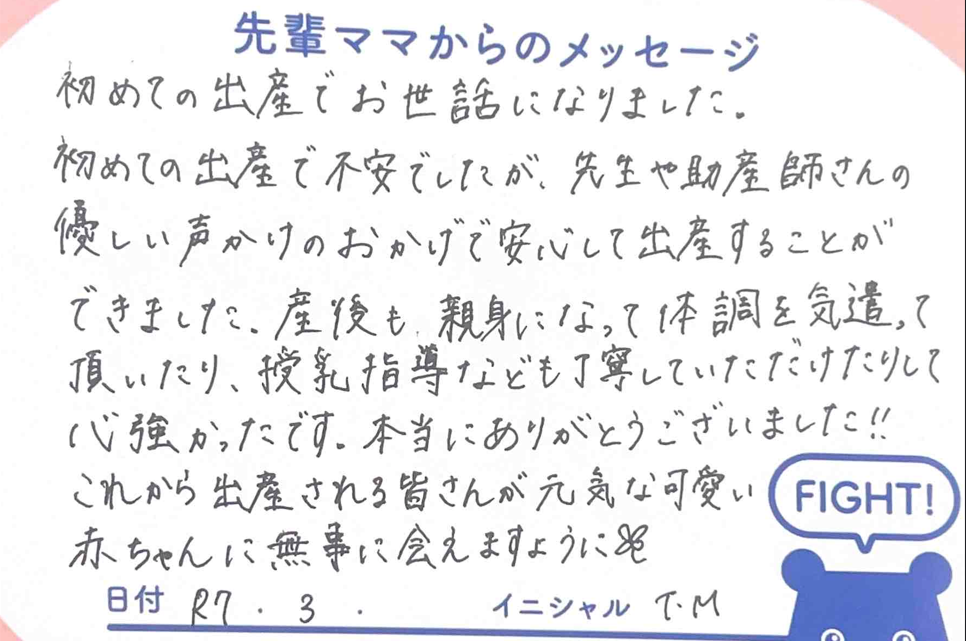 先輩ママからのメッセージ
初めての出産でお世話になりました。
初めての出産で不安でしたが、先生や助産師さんの
優しい声かけのおかげで安心して出産することが
できました。産後も親身になって体調を気遣って
頂いたり、授乳指導なども丁寧していただけたりして
心強かったです。本当にありがとうございました!!
これから出産される皆さんが元気な可愛い
赤ちゃんに無事に会えますように
FIGHT!
日付 R7 . 3 . イニシャル T.M